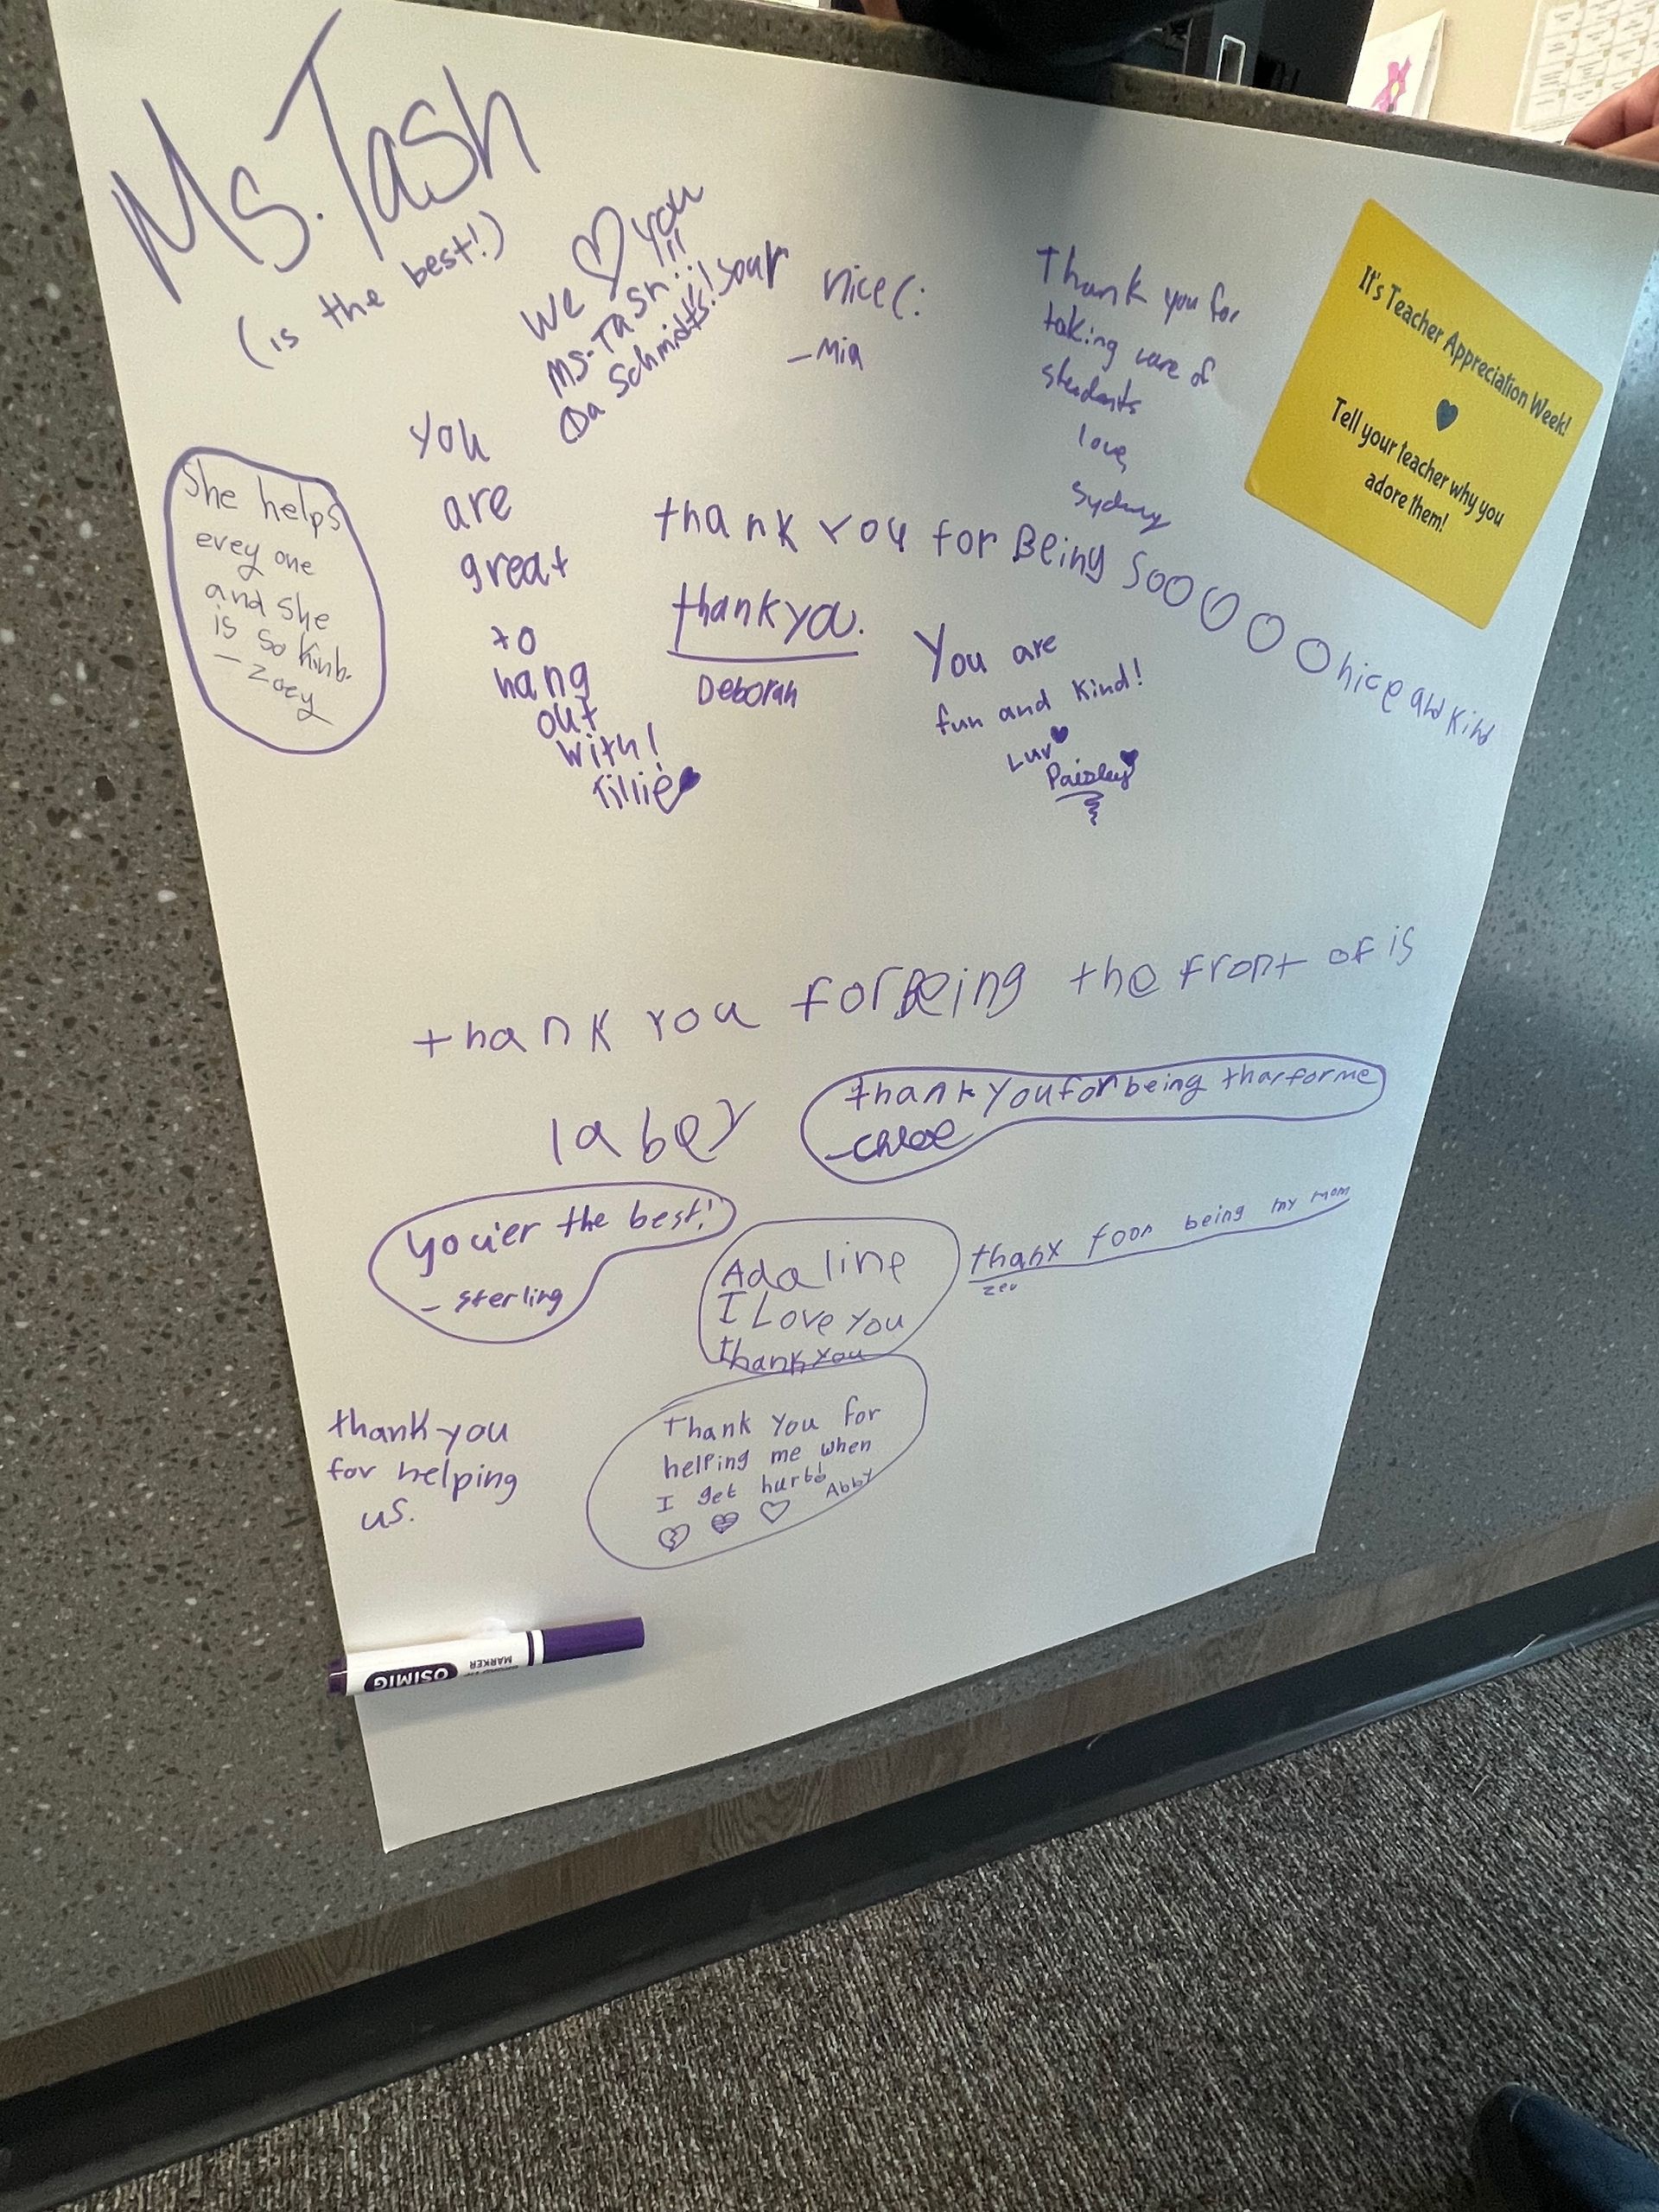 Ms. Tash
(is the best!)
We ♡ you
Ms. Tash!!!
Schmidts!
your nice(:
-Mia
Thank you for
taking care of
students
love,
Sydney
It's Teacher Appreciation Week!
♥
Tell your teacher why you
adore them!
She helps
evey one
and she
is so kinb.
- Zoey
you
are
great
to
hang
out
with!
Tillie♥
thank you for Being SooOOOO nice and kind
thank you.
Deborah
You are
fun and kind!
Luv♥
Paisley♥
thank you for Being the front of is
labey
thank you for being thar for me
-Chloe
you'er the best!
- sterling
Adaline
I Love you
thank you
thanx foor being my mom
zev
thank you
for helping
us.
Thank You for
helping me when
I get hurt!
♡ ♡ ♡ Abby
OSIMIG
MARKER